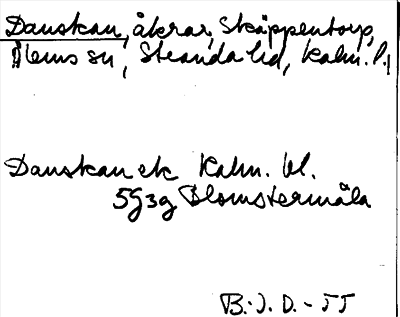 Danskan, åkrar, Skäppentorp,
Ålems sn, Stranda hd, Kalm. l.
Danskan ek Kalm. bl.
5G3g Blomstermåla
B. J. D. - 55